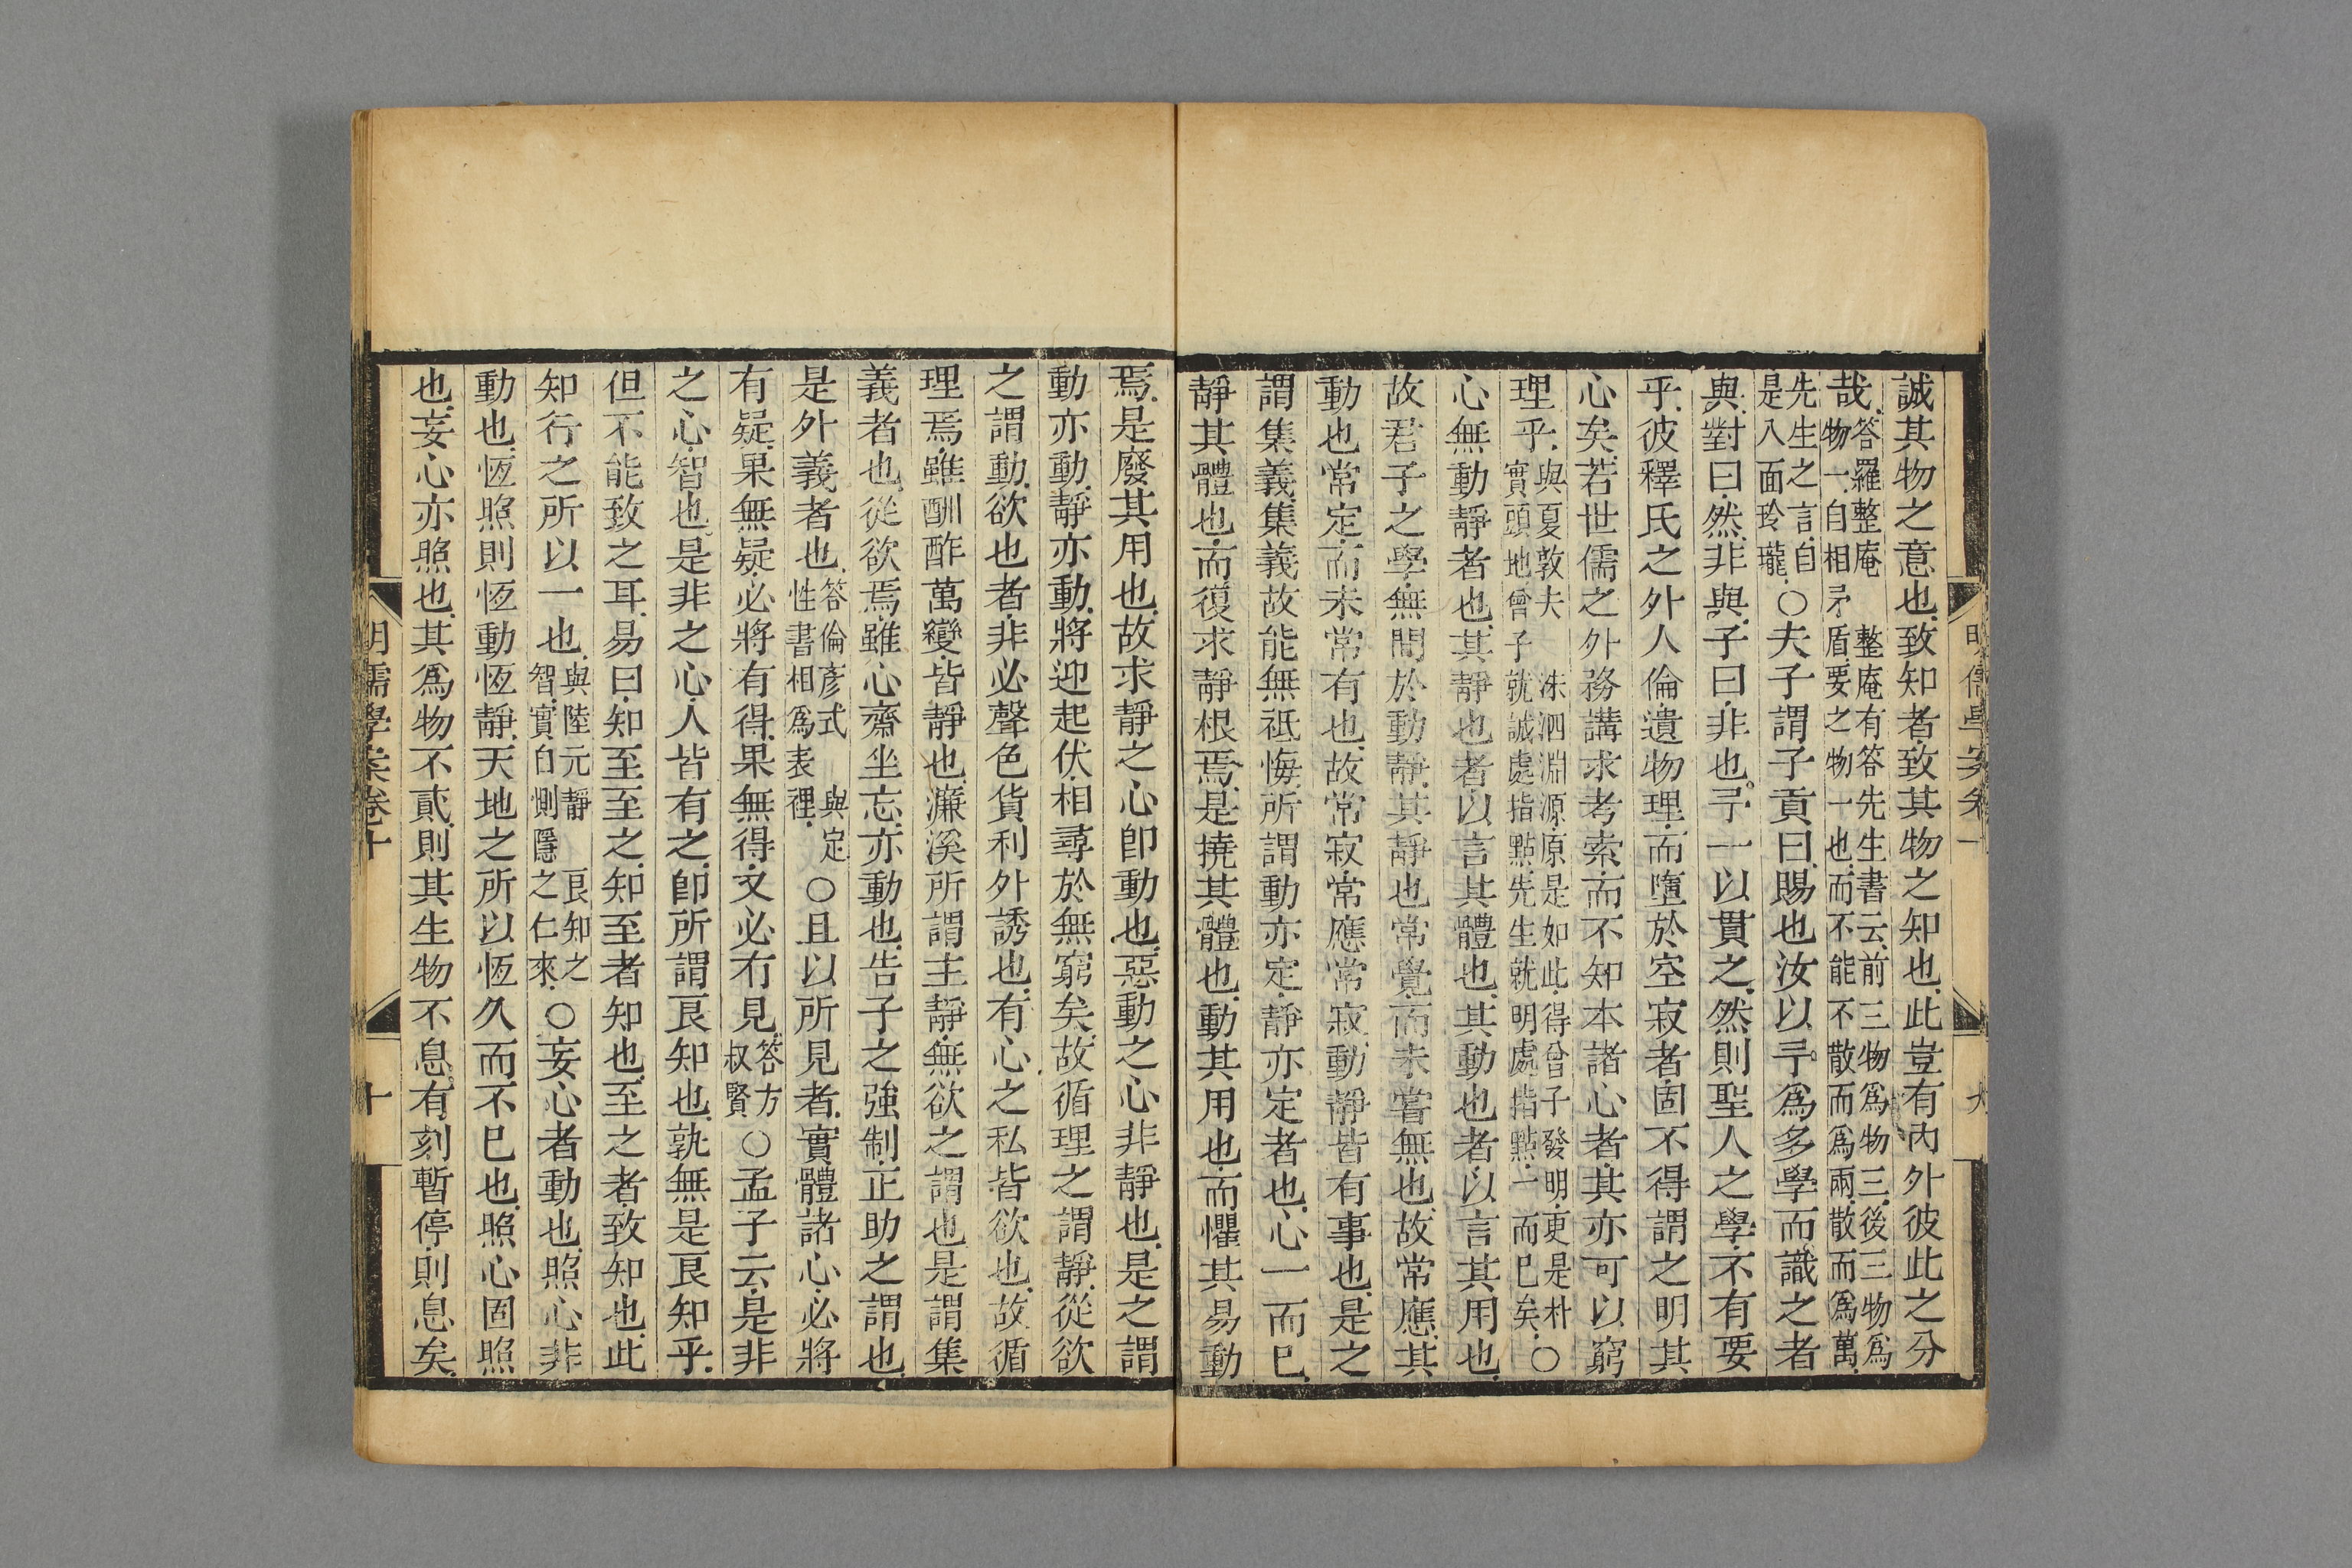 誠其物之意也致知者致其物之知也此豈有內外彼此之分
哉答羅整庵 整庵有答先生書云前三物爲物三後三物爲
物一自相矛盾要之物一也而不能不散而爲兩散而爲萬
先生之言自
是八面玲瓏○夫子謂子貢曰賜也汝以予爲多學而識之者
與對曰然非與子曰非也予一以貫之然則聖人之學不有要
乎彼釋氏之外人倫遺物理而墮於空寂者固不得謂之明其
心矣若世儒之外務講求考索而不知本諸心者其亦可以窮
理乎與夏敦夫 洙泗淵源原是如此得曾子發明更是朴
實頭地曾子就誠處指點先生就明處指點一而已矣○
心無動靜者也其靜也者以言其體也其動也者以言其用也
故君子之學無間於動靜其靜也常覺而未嘗無也故常應其
動也常定而未常有也故常寂常應常寂動靜皆有事也是之
謂集義集義故能無祗悔所謂動亦定靜亦定者也心一而已
靜其體也而復求靜根焉是撓其體也動其用也而懼其易動
焉是廢其用也故求靜之心卽動也惡動之心非靜也是之謂
動亦動靜亦動將迎起伏相尋於無窮矣故循理之謂靜從欲
之謂動欲也者非必聲色貨利外誘也有心之私皆欲也故循
理焉雖酬酢萬變皆靜也濂溪所謂主靜無欲之謂也是謂集
義者也從欲焉雖心齋坐忘亦動也告子之強制正助之謂也
是外義者也答倫彥式 與定
性書相爲表裡○且以所見者實體諸心必將
有疑果無疑必將有得果無得又必有見答方
叔賢○孟子云是非
之心智也是非之心人皆有之卽所謂良知也孰無是良知乎
但不能致之耳易曰知至至之知至者知也至之者致知也此
知行之所以一也與陸元靜 良知之
智實自惻隱之仁來○妄心者動也照心非
動也恆照則恆動恆靜天地之所以恆久而不已也照心固照
也妄心亦照也其爲物不貳則其生物不息有刻暫停則息矣
明儒學案卷十
十